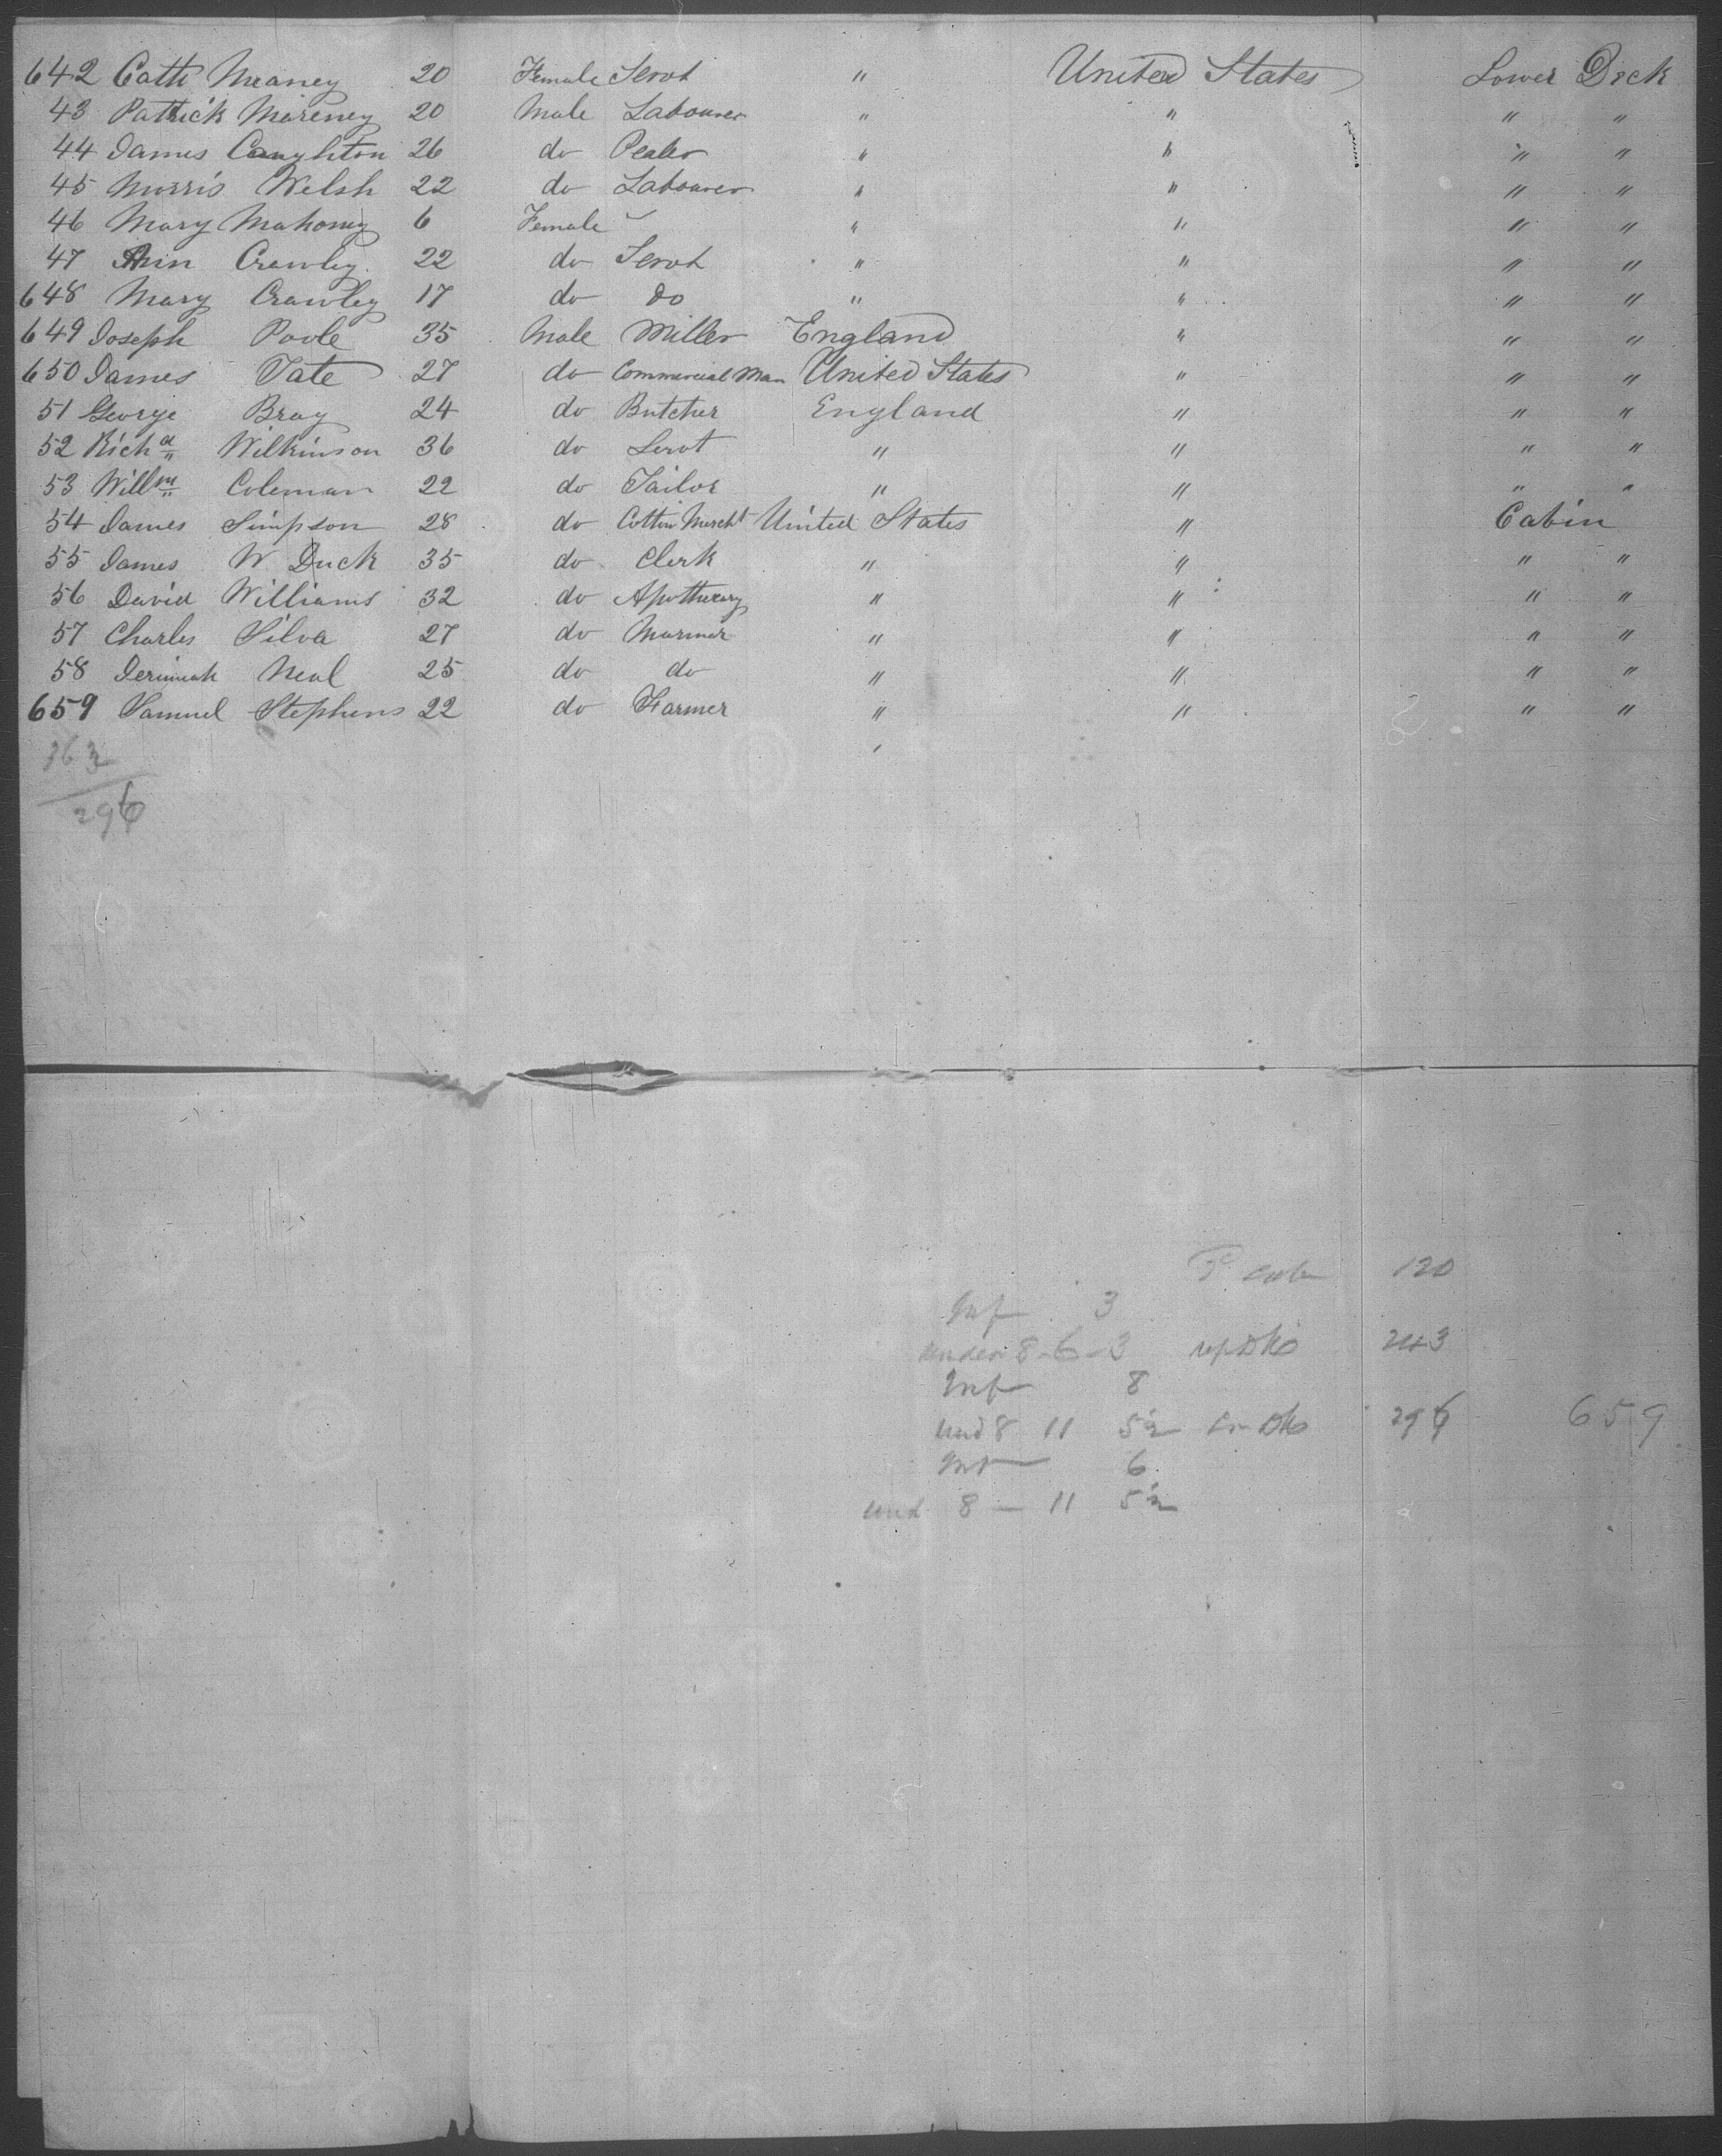 642 Cath Meaney 20 Female Servt " United States Lower Deck
43 Patrick Mareney 20 Male Labourer " " " "
44 James Caughton 26 do Dealer " " " "
45 Morris Welsh 22 do Labourer " " " "
46 Mary Mahoney 6 Female " " " "
47 Ann Crawley 22 do Servt " " " "
648 Mary Crawley 17 do Do " " " "
649 Joseph Poole 35 Male Miller England " " "
650 James Tate 27 do Commercial Man United States " " "
51 George Bray 24 do Butcher England " " "
52 Richd Wilkinson 36 do Servt " " " "
53 Willm Coleman 22 do Tailor " " " "
54 James Simpson 28 do Cotton Mercht United States " Cabin
55 James W. Duck 35 do Clerk " " " "
56 David Williams 32 do Apothecary " " " "
57 Charles Silva 27 do Mariner " " " "
58 Jerimiah Neal 25 do do " " " "
659 Samuel Stephens 22 do Farmer " " " "
363
296
120
Inf 3
under 8 - 6 - 3 243
Inf 8
und 8 11 5½ 296 659
Inf 6
und 8 - 11 5½